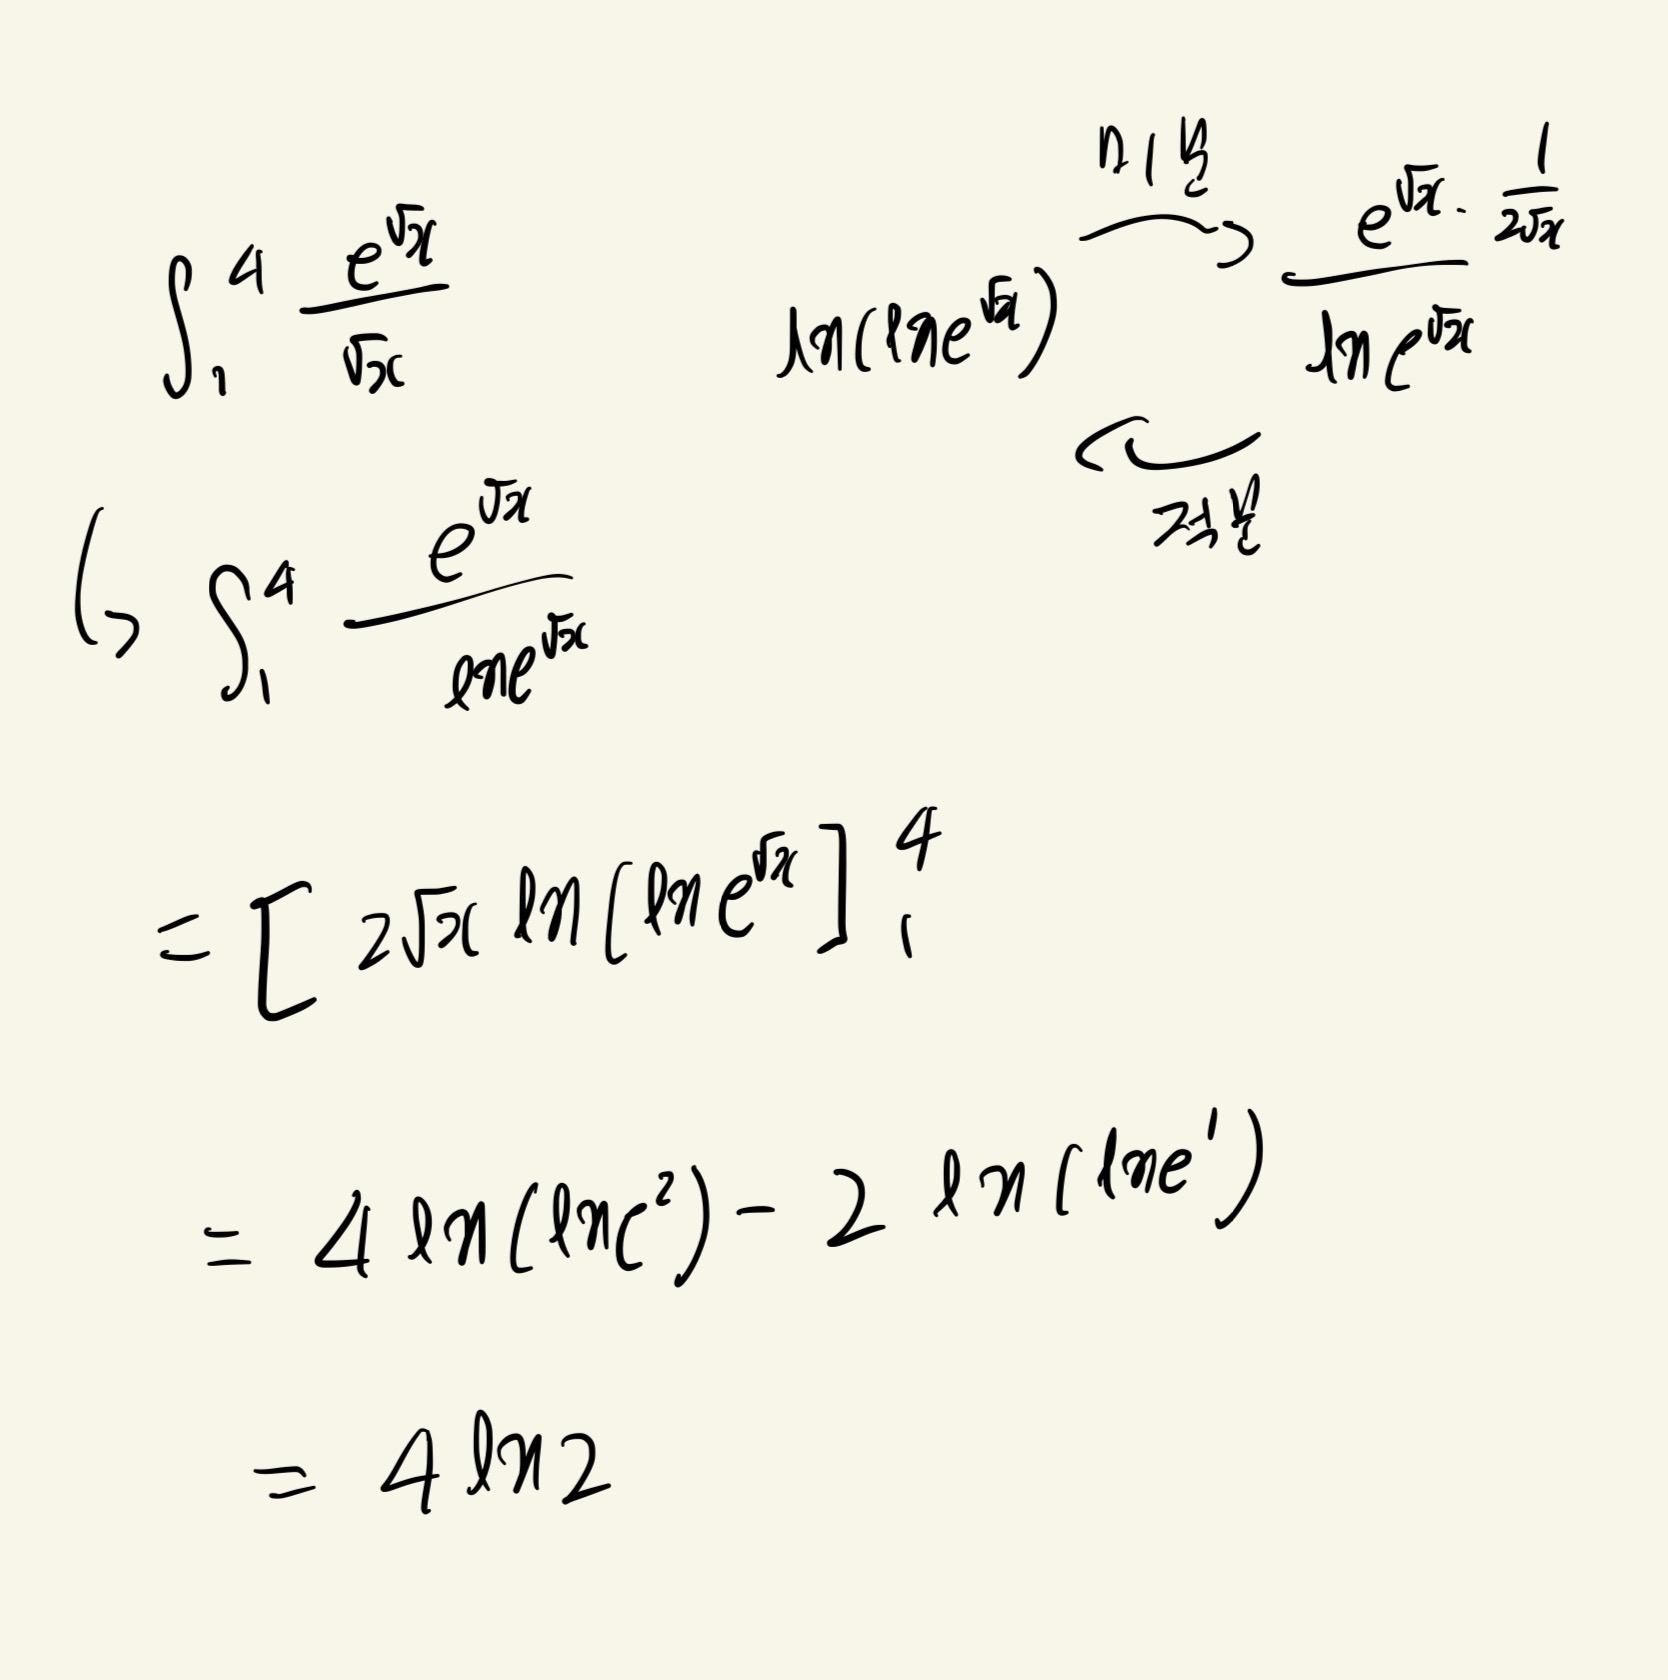 ∫₁⁴ e^√x / √x
ln(ln e^√x) 미분 → (e^√x · 1/(2√x)) / (ln e^√x)
← 적분
↳ ∫₁⁴ e^√x / ln e^√x
= [ 2√x ln(ln e^√x ]₁⁴
= 4 ln(ln e²) - 2 ln(ln e¹)
= 4 ln 2